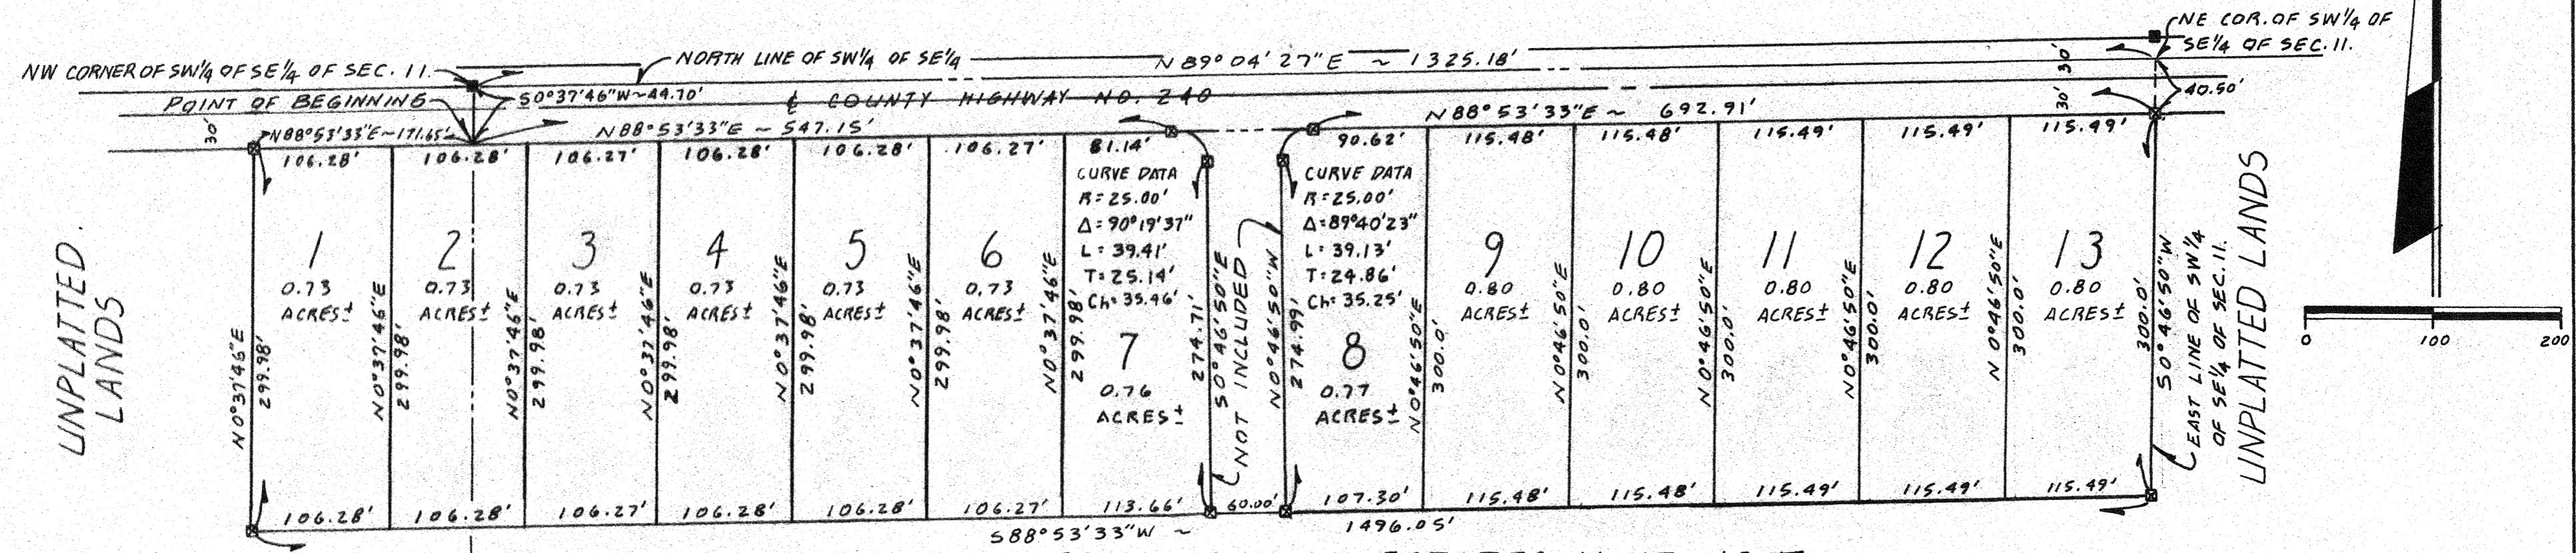 NE COR. OF SW¼ OF
SE¼ OF SEC. 11.
NORTH LINE OF SW¼ OF SE¼
N89°04'27"E ~ 1325.18'
NW CORNER OF SW¼ OF SE¼ OF SEC. 11.
30'
POINT OF BEGINNING
S0°37'46"W~44.70'
℄ COUNTY HIGHWAY NO. 240
30'
40.50'
30'
N88°53'33"E~171.65'
N88°53'33"E ~ 547.15'
N88°53'33"E ~ 692.91'
106.28'
106.28'
106.27'
106.28'
106.28'
106.27'
81.14'
90.62'
115.48'
115.48'
115.49'
115.49'
115.49'
UNPLATTED
LANDS
N0°37'46"E
299.98'
1
0.73
ACRES±
N0°37'46"E
299.98'
2
0.73
ACRES±
N0°37'46"E
299.98'
3
0.73
ACRES±
N0°37'46"E
299.98'
4
0.73
ACRES±
N0°37'46"E
299.98'
5
0.73
ACRES±
N0°37'46"E
299.98'
6
0.73
ACRES±
N0°37'46"E
299.98'
CURVE DATA
R=25.00'
Δ=90°19'37"
L=39.41'
T=25.14'
Ch=35.46'
7
0.76
ACRES±
274.71'
S0°46'50"E
NOT INCLUDED
N0°46'50"W
274.99'
CURVE DATA
R=25.00'
Δ=89°40'23"
L=39.13'
T=24.86'
Ch=35.25'
8
0.77
ACRES±
N0°46'50"E
300.0'
9
0.80
ACRES±
N0°46'50"E
300.0'
10
0.80
ACRES±
N0°46'50"E
300.0'
11
0.80
ACRES±
N0°46'50"E
300.0'
12
0.80
ACRES±
N0°46'50"E
300.0'
13
0.80
ACRES±
300.0'
S0°46'50"W
EAST LINE OF SW¼
OF SE¼ OF SEC. 11.
UNPLATTED LANDS
0 100 200
106.28'
106.28'
106.27'
106.28'
106.28'
106.27'
113.66'
60.00'
107.30'
115.48'
115.48'
115.49'
115.49'
115.49'
S88°53'33"W ~ 1496.05'